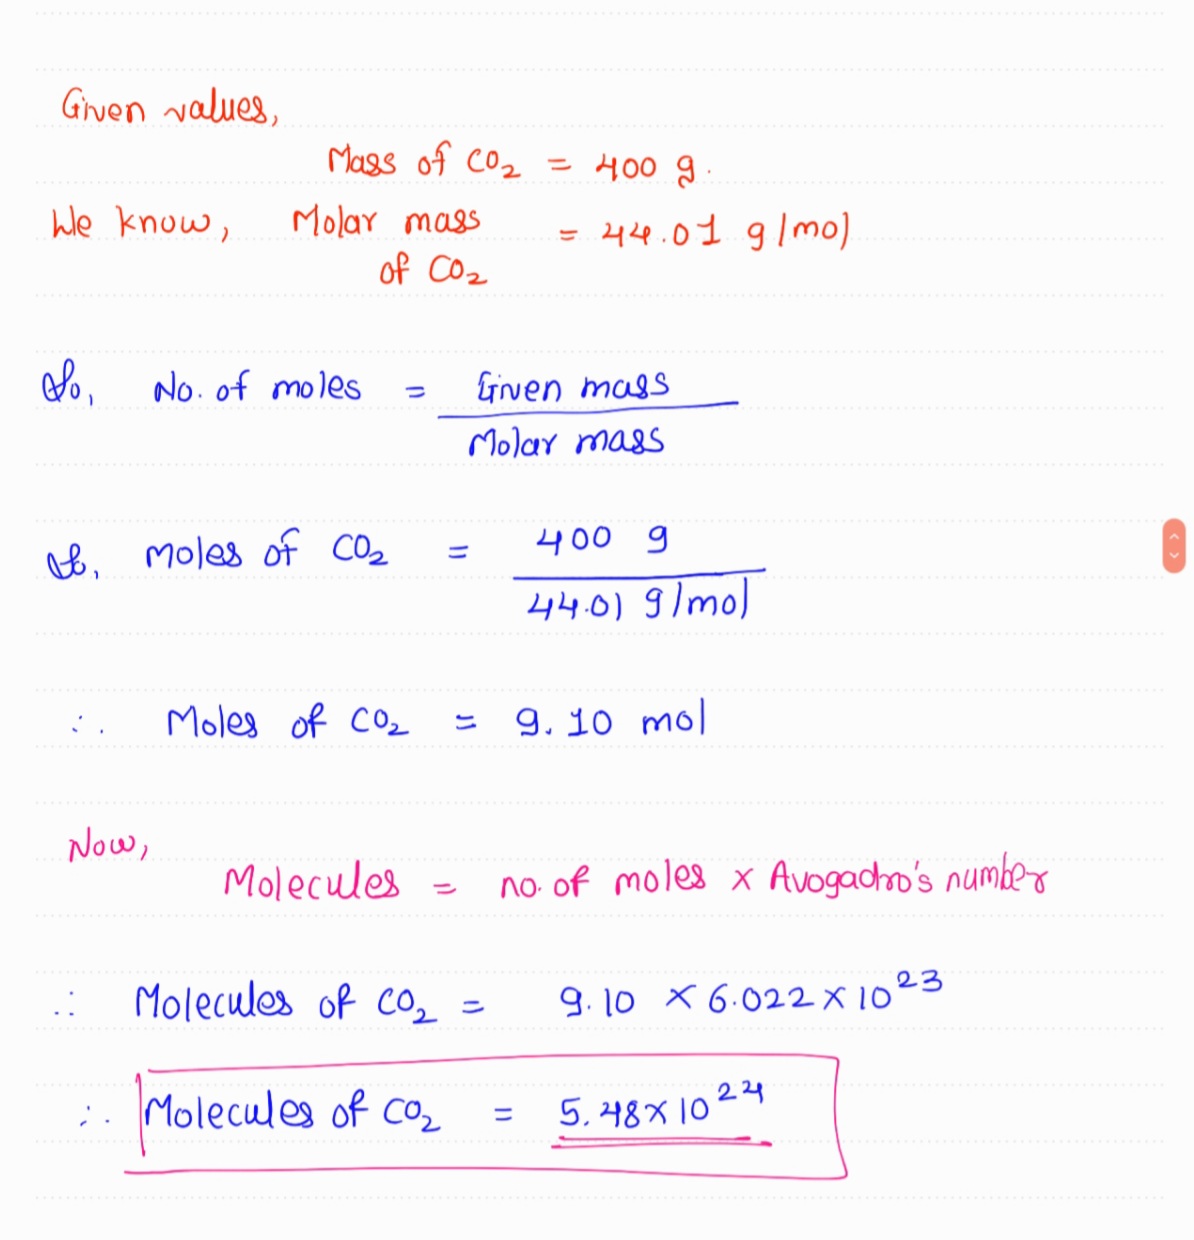 Given values,
Mass of CO₂ = 400 g.
We know, Molar mass of CO₂ = 44.01 g/mol
So, No. of moles = Given mass
Molar mass
So, Moles of CO₂ = 400 g
44.01 g/mol
∴ Moles of CO₂ = 9.10 mol
Now,
Molecules = no. of moles × Avogadro's number
∴ Molecules of CO₂ = 9.10 × 6.022 × 10²³
∴ Molecules of CO₂ = 5.48 × 10²⁴